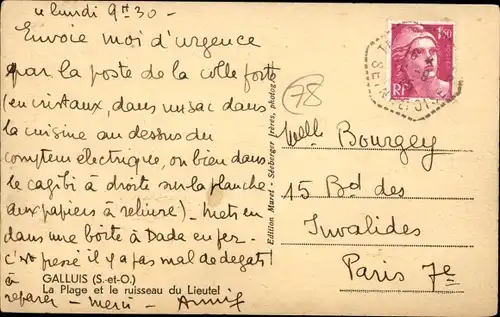 ce lundi 9H30 -
Envoie moi d'urgence
par la poste de la colle forte
(en cristaux, dans un sac dans
la cuisine au dessus du
compteur électrique, ou bien dans
le cagibi à droite sur la planche
aux papiers à relier) - mets en
dans une boîte à Dada en fer.
c'est pressé il y a pas mal de dégats
à
réparer - merci -
GALLUIS (S.-et-O.)
La Plage et le ruisseau du Lieutel
Edition Maret - Séeberger frères, photog.
78
1F50
RF
SEINE
Melle Bourgey
15 Bd des
Invalides
Paris 7e